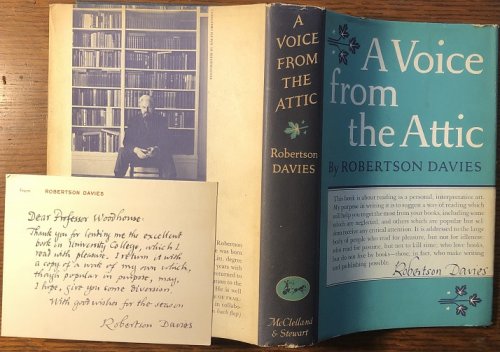 A
VOICE
FROM
THE
ATTIC
Robertson
DAVIES
McClelland
& Stewart
A Voice
from
the Attic
By ROBERTSON DAVIES
This book is about reading as a personal, interpretative art.
My purpose in writing it is to suggest a way of reading which
will help you get the most from your books, including some
which are neglected, and others which are popular but sel-
dom receive any critical attention. It is addressed to the large
body of people who read for pleasure, but not for idleness;
who read for pastime, but not to kill time; who love books,
but do not live by books—those, in fact, who make writing
and publishing possible.
Robertson Davies
From ROBERTSON DAVIES
Dear Professor Woodhouse:
Thank you for lending me the excellent
book on University College, which I
read with pleasure. I return it with
a copy of a work of my own which,
though popular in purpose, may,
I hope, give you some diversion.
With good wishes for the season
Robertson Davies
Robertson
was born
degree
years with
returned to
He is well
in collabo-
back flap)